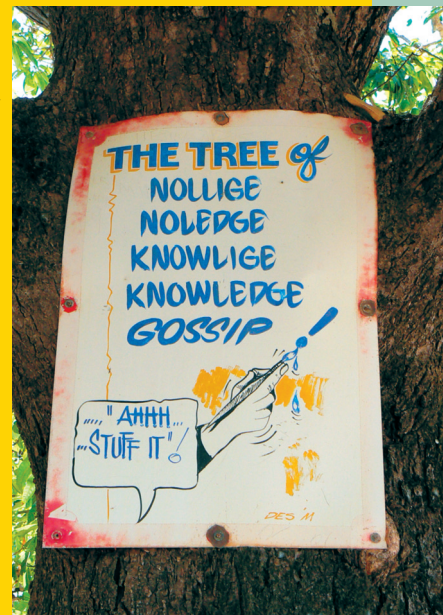 THE TREE of
NOLLIGE
NOLEDGE
KNOWLIGE
KNOWLEDGE
GOSSIP!
..... "AHHH...
...STUFF IT"!
DES 'M